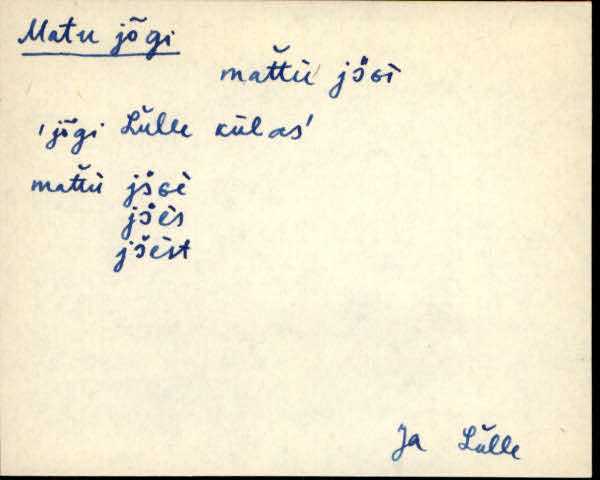 Matu jõgi
mat̆tù jə̊ɢì
'jõgi Lülle külas'
mat̆tù jə̊ɢè
jə̊ès
jə̆èst
Ja Lülle